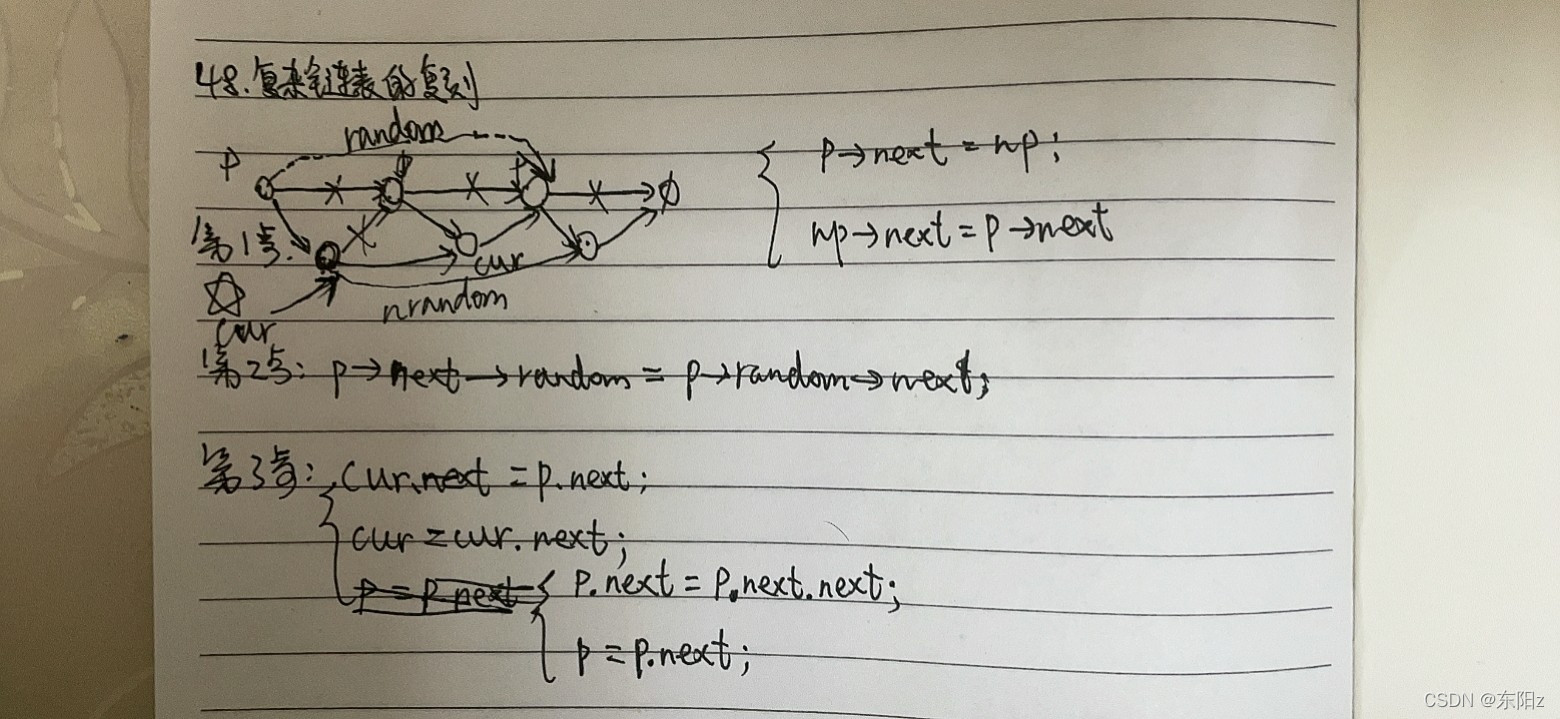 48.复杂链表的复刻
random
P
p→next = np;
np→next = p→next
第1步:
cur
nrandom
cur
第2步: p→next→random = p→random→next;
第3步: cur.next = p.next;
cur = cur.next;
p = p.next
p.next = p.next.next;
p = p.next;
CSDN @东阳z